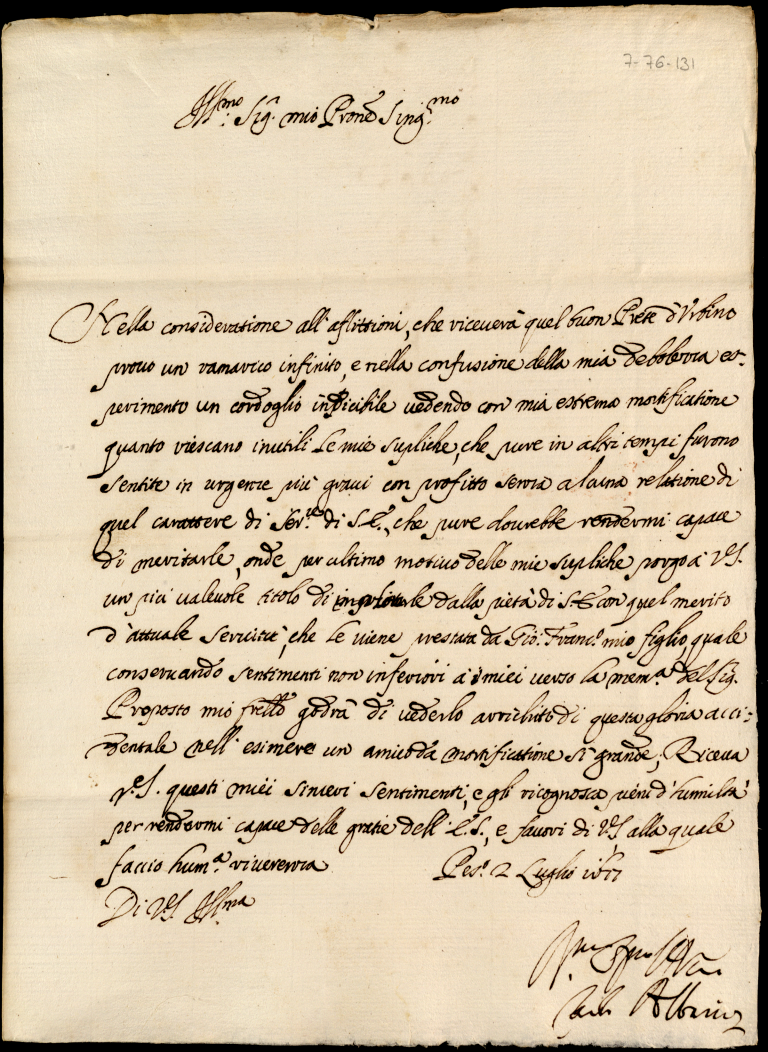 7-76-131
Ill.mo Sig.r mio Prone Sing.mo
Nella consideratione all'aflittioni, che riceverà quel buon Prete d'Urbino
provo un ramarico infinito, e nella confusione della mia debolezza es-
perimento un cordoglio indicibile vedendo con mia estrema mortificatione
quanto riescano inutili le mie supliche, che pure in altri tempi furono
sentite in urgenze più gravi con profitto senza alcuna relatione di
quel carattere di Ser.re di S.E., che pure dovrebbe rendermi capace
di meritarle, onde per ultimo motivo delle mie supliche porgo à V.S.
un più valevole titolo di dalla pietà di S.E. con quel merito
d'attuale servitù, che le viene prestata da Gio: Franc.o mio figlio, quale
conservando sentimenti non inferiori à i miei verso la mem.a del Sig.
Proposto mio frello godrà di vederlo arrichito di questa gloria acci-
dentale nell'esimere un amico da mortificatione si grande; Riceva
V.S. questi miei sinceri sentimenti, e gli ricognosca pieni d'humiltà
per rendermi capace delle gratie dell'E.S., e favori di V.S. alla quale
faccio hum.a riverenza Pes.o 2 Luglio 1677
Di V.S. Ill.ma
Albani